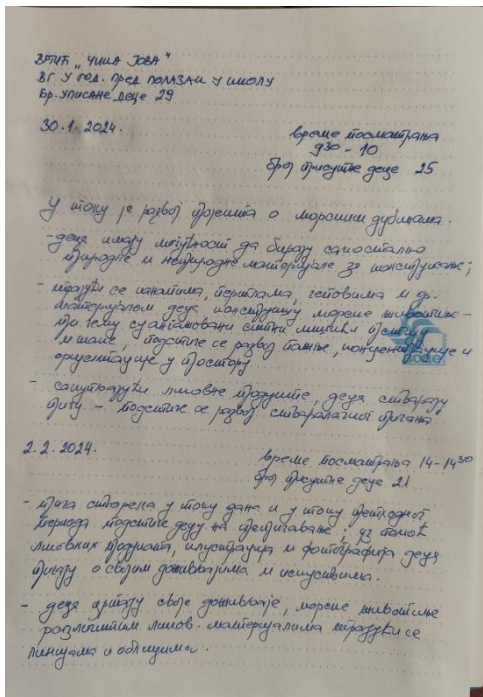 ВТИЋ „ЧИКА ЈОВА"
ВГ У ГОД. ПРЕД ПОЛАЗАК У ШКОЛУ
БР. УПИСАНЕ ДЕЦЕ 29
30.1.2024.
време посматрања
9³⁰ - 10
број присутне деце 25
У току је развој пројекта о морским дубинама:
- деца имају могућност да бирају самостално
природне и неприродне материјале за конструисање;
- играјући се канапима, перлама, чеповима и др.
материјалом деца конструишу морске животиње -
при чему су ангажовани ситни мишићи прстију
и шаке, подстиче се развој пажње, концентрације и
оријентације у простору
- сликовне продукте, деца стварају
причу - подстиче се развој стваралачког причања
2.2.2024.
време посматрања 14-14³⁰
број присутне деце 21
- прича створена у току дана и у току претходног
периода подстиче децу на препричавање; уз помоћ
ликовних продуката, илустрација и фотографија деца
причају о својим доживљајима и искуствима.
- деца цртају своје доживљаје, морске животиње
различитим ликов. материјалима играјући се
линијама и облицима.